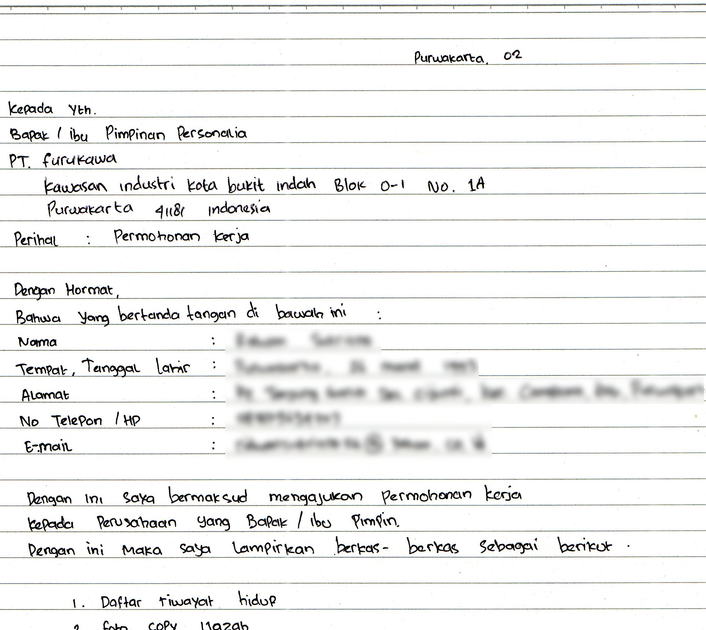 Purwakarta, 02
Kepada Yth.
Bapak / ibu Pimpinan Personalia
PT. furukawa
Kawasan industri kota bukit indah Blok O-1 No. 1A
Purwakarta 41181 Indonesia
Perihal : Permohonan kerja
Dengan Hormat,
Bahwa yang bertanda tangan di bawah ini :
Nama :
Tempat, Tanggal lahir :
Alamat :
No Telepon / HP :
E-mail :
Dengan ini saya bermaksud mengajukan Permohonan kerja
kepada Perusahaan yang Bapak / ibu Pimpin.
Dengan ini Maka saya lampirkan berkas- berkas sebagai berikut .
1. Daftar riwayat hidup
2 foto copy Ijazah